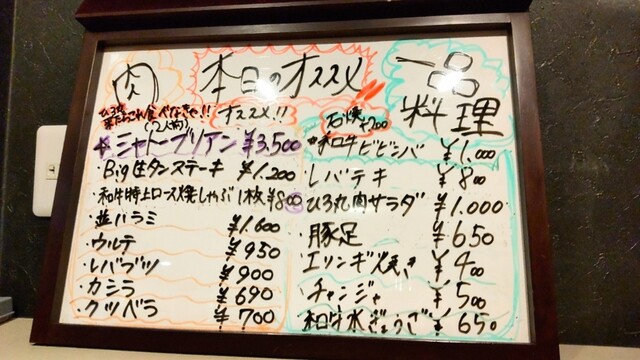 本日のオススメ
肉
ひろ丸
来たらこれ食べなきゃ!! オススメ!!
(2人前)
シャトーブリアン ¥3.500
・Big 生タンステーキ ¥1.200
・和牛特上ロース焼しゃぶ 1枚 ¥800
・並ハラミ ¥1.600
・ウルテ ¥950
・レバブツ ¥900
・カシラ ¥690
・クツベラ ¥700
一品料理
石焼+200
・和牛ビビンバ ¥1.000
・レバテキ ¥800
ひろ丸肉サラダ ¥1.000
・豚足 ¥650
・エリンギ焼き ¥400
・チャンジャ ¥500
和牛水ぎょうざ ¥650